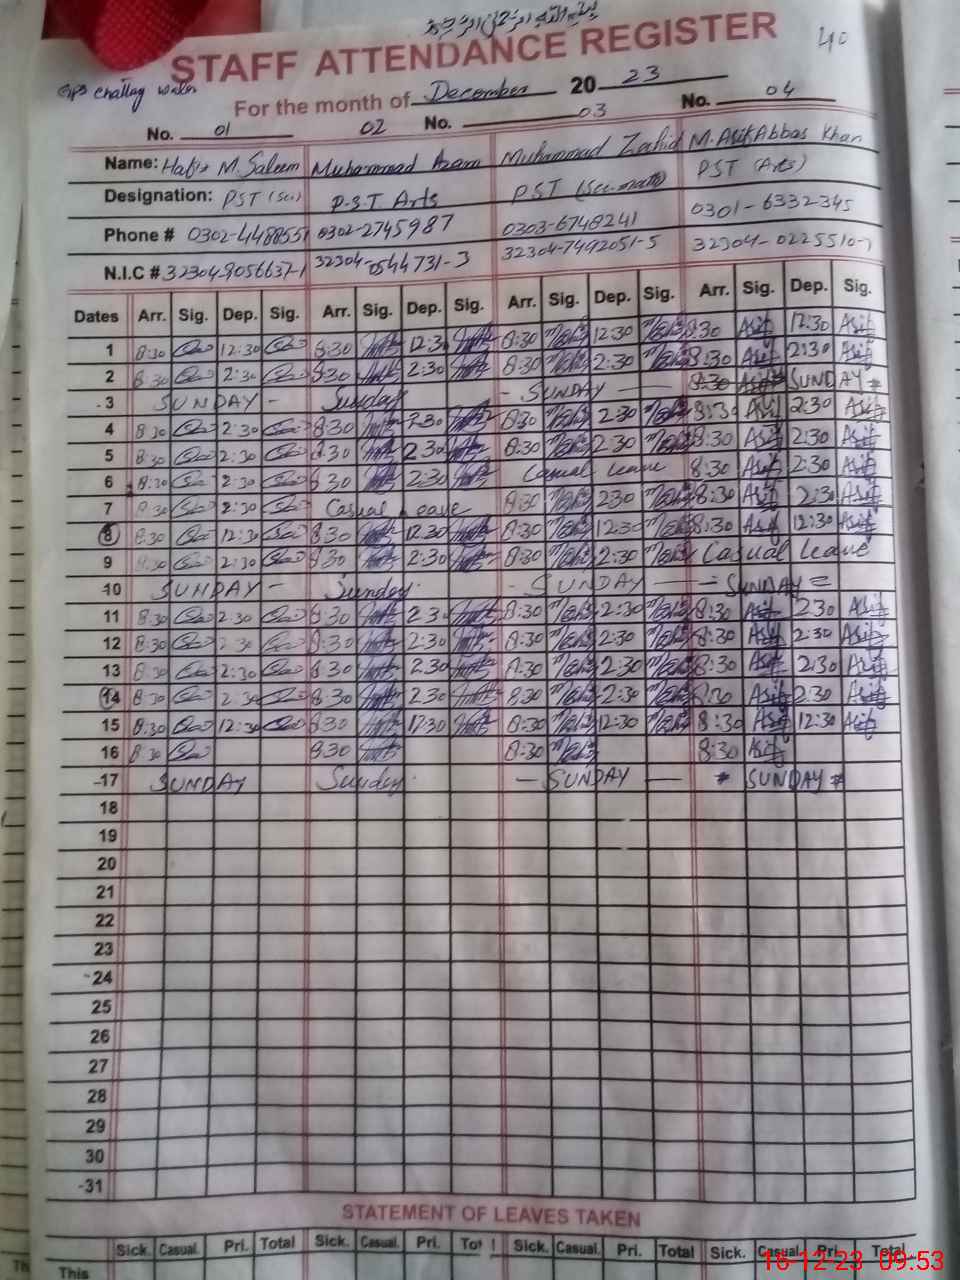 بسم اللہ الرحمن الرحیم
STAFF ATTENDANCE REGISTER 40
For the month of December 20 23
No. 01 02 No. 03 No. 04
Name: Hafiz M. Saleem Muhammad Azam Muhammad Zahid M. Asif Abbas Khan
Designation: PST (Sci) P.S.T Arts PST (Sci-math) PST (Arts)
Phone # 0302-4488551 0302-2745987 0303-6748241 0301-6332345
N.I.C # 32304-9056637-1 32304-0544731-3 32304-7492051-5 32304-0225510-7
Dates Arr. Sig. Dep. Sig. Arr. Sig. Dep. Sig. Arr. Sig. Dep. Sig. Arr. Sig. Dep. Sig.
1 8:30 12:30 8:30 12:30 8:30 12:30 8:30 Asif 12:30 Asif
2 8:30 2:30 8:30 2:30 8:30 2:30 8:30 Asif 2:30 Asif
-3 SUNDAY - Sunday - SUNDAY - 8:30 Asif SUNDAY
4 8:30 2:30 8:30 2:30 8:30 2:30 8:30 Asif 2:30 Asif
5 8:30 2:30 8:30 2:30 8:30 2:30 8:30 Asif 2:30 Asif
6 8:30 2:30 8:30 2:30 Casual leave 8:30 Asif 2:30 Asif
7 8:30 2:30 Casual Leave 8:30 2:30 8:30 Asif 2:30 Asif
8 8:30 12:30 8:30 12:30 8:30 12:30 8:30 Asif 12:30 Asif
9 8:30 2:30 8:30 2:30 8:30 2:30 Casual Leave
-10 SUNDAY - Sunday - SUNDAY - SUNDAY =
11 8:30 2:30 8:30 2:30 8:30 2:30 8:30 Asif 2:30 Asif
12 8:30 2:30 8:30 2:30 8:30 2:30 8:30 Asif 2:30 Asif
13 8:30 2:30 8:30 2:30 8:30 2:30 8:30 Asif 2:30 Asif
14 8:30 2:30 8:30 2:30 8:30 2:30 8:30 Asif 2:30 Asif
15 8:30 12:30 8:30 12:30 8:30 12:30 8:30 Asif 12:30 Asif
16 8:30 8:30 8:30 8:30 Asif
-17 SUNDAY Sunday - SUNDAY - SUNDAY
18
19
20
21
22
23
-24
25
26
27
28
29
30
-31
STATEMENT OF LEAVES TAKEN
Sick. Casual. Pri. Total Sick. Casual. Pri. Sick. Casual. Pri. Total Sick. Casual. Pri. Total
This
16-12-23 09:53